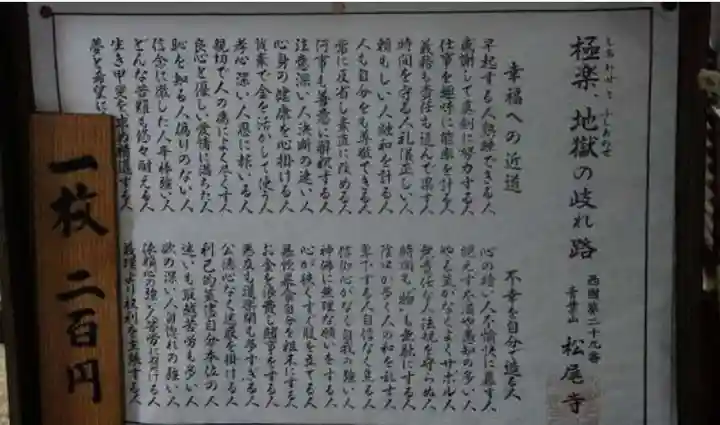 極楽 地獄の岐れ路
西国第二十九番
青葉山 松尾寺
幸福への近道
早起する人熟睡できる人
感謝して真剣に努力する人
仕事を趣味に能率を計る人
義務も責任も進んで果す人
時間を守る人礼儀正しい人
頼もしい人融和を計る人
人も自分をも尊敬できる人
常に反省し素直に改める人
何事も善意に解釈する人
注意深い人決断の速い人
心身の健康を心掛ける人
質素で金を活かして使う人
孝心深い人恩に報いる人
親切で人の為によく尽す人
良心と優しい愛情に満ちた人
恥を知る人偽りのない人
信念に徹した人辛棒強い人
どんな苦難も悠々耐える人
生き甲斐を求め精進する人
夢と希望に
不幸を自分で造る人
心の暗い人不愉快に暮す人
絶えず不満や愚知の多い人
やる気がなくよくサボル人
無責任な人法規を守らぬ人
時間も物も無駄にする人
陰口が多く人の和を乱す人
卑下する人自信なく焦る人
信仰心がなく自我の強い人
神佛に無理な願いをする人
心が狭くすぐ腹を立てる人
暴飲暴食自分を粗末にする人
お金を浪費し賭事をする人
悪度も道楽間も多すぎる人
公徳心なく迷惑を掛ける人
利己的気儘自分本位の人
迷いも取越苦労も多い人
欲の深い人自惚れの強い人
依頼心の強い人苦労に負ける人
義理より権利を主張する人
一枚 二百円